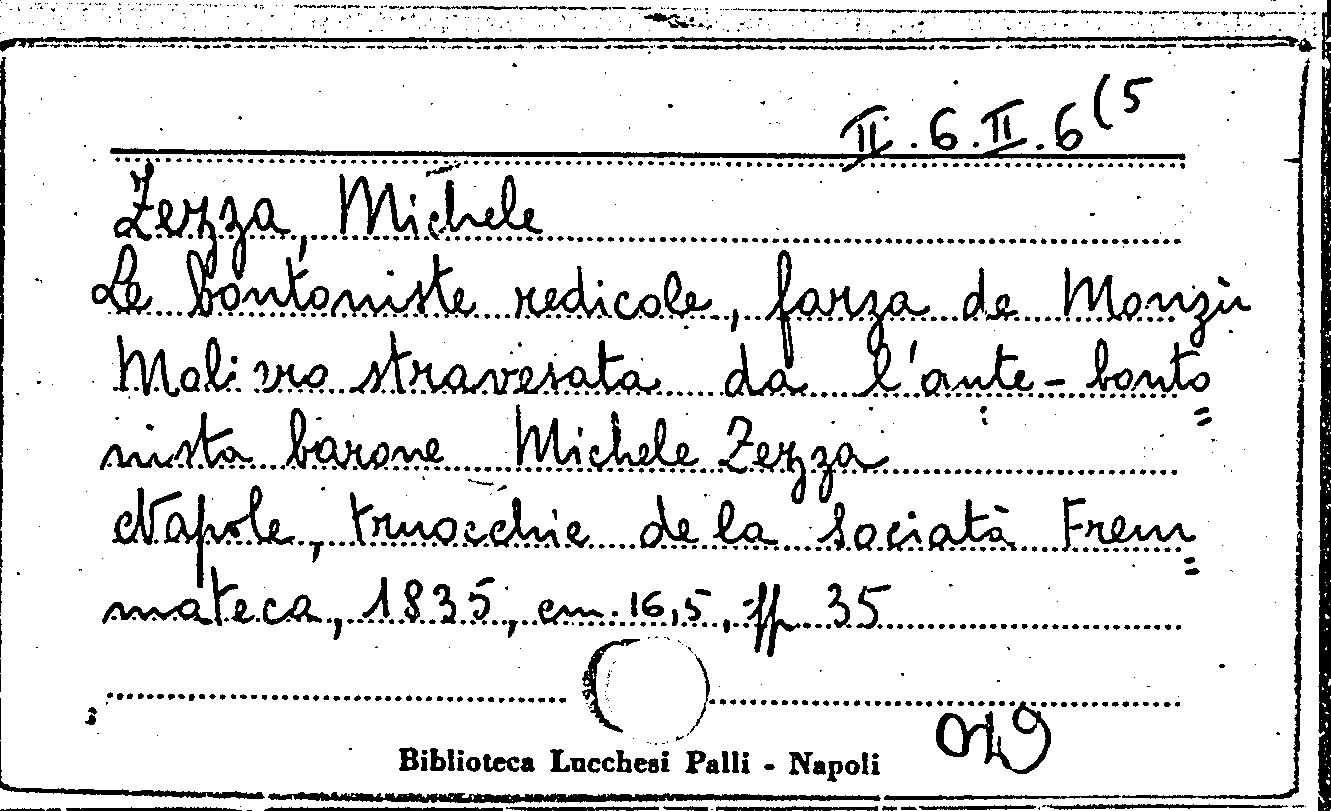 II.6.II.6(5
Zezza, Michele
Le bontoniste redicole, farza de Monzù
Moliero stravesata da l'ante-bonto=
nista barone Michele Zezza
Napole, truocchie de la Sociatà Frem=
mateca, 1835, cm. 16,5, pp 35
Biblioteca Lucchesi Palli - Napoli